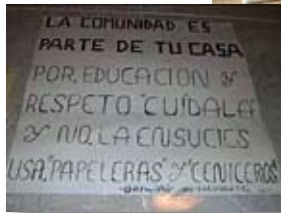 LA COMUNIDAD ES
PARTE DE TU CASA
POR EDUCACION Y
RESPETO CUÍDALA
Y NO LA ENSUCIES
USA "PAPELERAS" Y "CENICEROS"